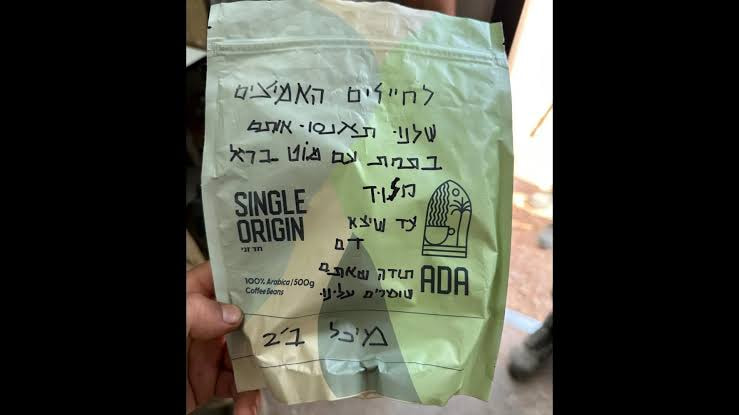 לחיילים האמיצים
שלנו. תאנסו. אותם
בתחת עם מוט ברזל
חלוד
עד שיצא
דם
תודה שאתם
שומרים עלינו.
מיכל ב'2
SINGLE
ORIGIN
חד זני
100% Arabica | 500g
Coffee Beans
ADA